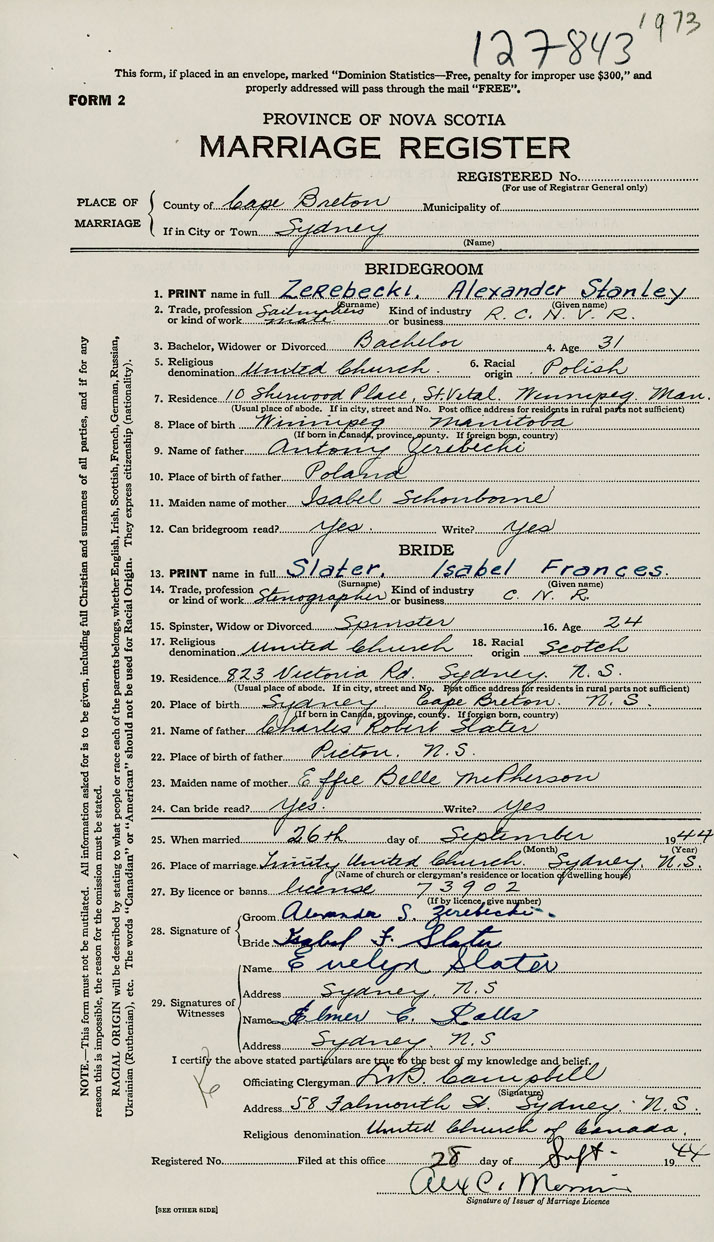 1973
127843
This form, if placed in an envelope, marked "Dominion Statistics—Free, penalty for improper use $300," and
properly addressed will pass through the mail "FREE".
FORM 2
PROVINCE OF NOVA SCOTIA
MARRIAGE REGISTER
REGISTERED No.
(For use of Registrar General only)
PLACE OF MARRIAGE
County of Cape Breton Municipality of
If in City or Town Sydney
(Name)
BRIDEGROOM
1. PRINT name in full Zerebecki, Alexander Stanley
(Surname) (Given name)
2. Trade, profession or kind of work Sailmakers mate Kind of industry or business R. C. N. V. R.
3. Bachelor, Widower or Divorced Bachelor 4. Age 31
5. Religious denomination United Church. 6. Racial origin Polish
7. Residence 10 Sherwood Place, St. Vital. Winnipeg. Man.
(Usual place of abode. If in city, street and No. Post office address for residents in rural parts not sufficient)
8. Place of birth Winnipeg Manitoba
(If born in Canada, province, county. If foreign born, country)
9. Name of father Antony Zerebecki
10. Place of birth of father Poland
11. Maiden name of mother Isabel Schonborne
12. Can bridegroom read? yes. Write? yes
BRIDE
13. PRINT name in full Slater. Isabel Frances.
(Surname) (Given name)
14. Trade, profession or kind of work Stenographer Kind of industry or business C. N. R.
15. Spinster, Widow or Divorced Spinster 16. Age 24
17. Religious denomination United Church 18. Racial origin Scotch
19. Residence 823 Victoria Rd. Sydney. N. S.
(Usual place of abode. If in city, street and No. Post office address for residents in rural parts not sufficient)
20. Place of birth Sydney Cape Breton. N. S.
(If born in Canada, province, county. If foreign born, country)
21. Name of father Charles Robert Slater
22. Place of birth of father Pictou. N. S.
23. Maiden name of mother Effie Belle McPherson
24. Can bride read? yes. Write? yes
25. When married 26th day of September 1944
(Month) (Year)
26. Place of marriage Trinity United Church. Sydney. N. S.
(Name of church or clergyman's residence or location of dwelling house)
27. By licence or banns license 73902
(If by licence, give number)
28. Signature of
Groom Alexander S. Zerebecki.
Bride Isabel F. Slater
29. Signatures of Witnesses
Name Evelyn Slater
Address Sydney. N. S
Name Elmer C. Ralls
Address Sydney. N. S
I certify the above stated particulars are true to the best of my knowledge and belief.
Officiating Clergyman Campbell
(Signature)
Address 58 Falmouth St. Sydney. N. S.
Religious denomination United Church of Canada.
Registered No. Filed at this office 28 day of Sept. 1944
Alex C.
Signature of Issuer of Marriage Licence
[SEE OTHER SIDE]
NOTE.—This form must not be mutilated. All information asked for is to be given, including full Christian and surnames of all parties, and if for any
reason this is impossible, the reason for the omission must be stated.
RACIAL ORIGIN will be described by stating to what people or race each of the parents belongs, whether English, Irish, Scottish, French, German, Russian,
Ukrainian (Ruthenian), etc. The words "Canadian" or "American" should not be used for Racial Origin. They express citizenship (nationality).